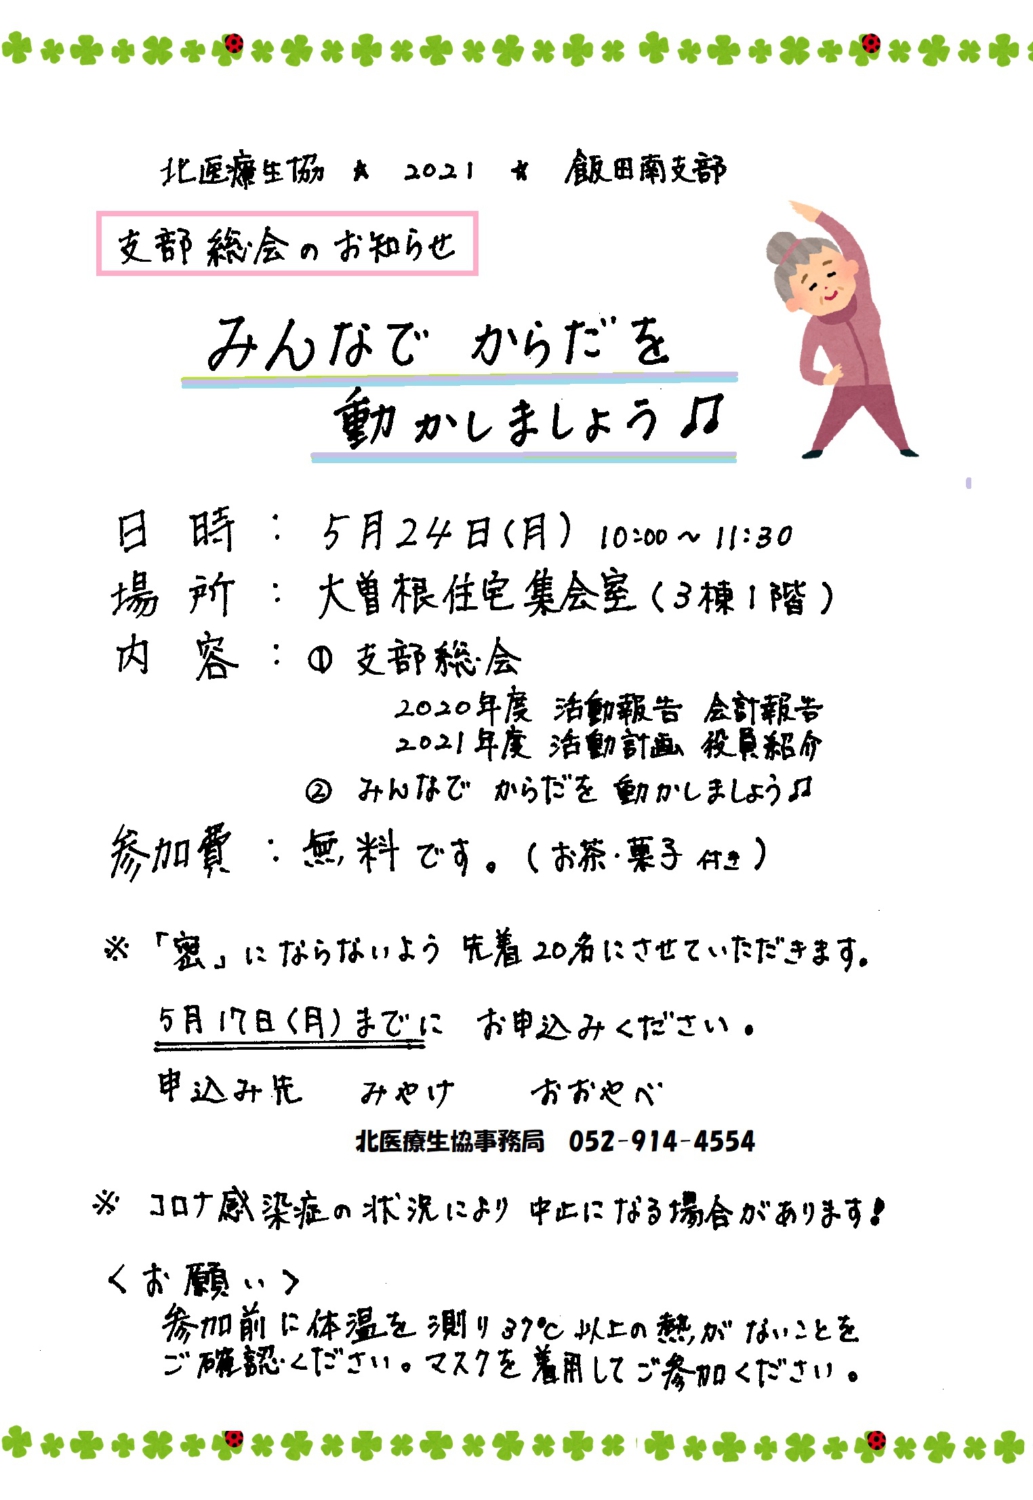 北医療生協 ☆ 2021 ☆ 飯田南支部
支部総会のお知らせ
みんなで からだを
動かしましょう♫
日時：5月24日(月) 10:00～11:30
場所：大曽根住宅集会室(3棟1階)
内容：① 支部総会
2020年度 活動報告 会計報告
2021年度 活動計画 役員紹介
② みんなで からだを 動かしましょう♫
参加費：無料です。(お茶・菓子付き)
※「密」にならないよう 先着20名にさせていただきます。
5月17日(月)までに お申込みください。
申込み先 みやけ おおやべ
北医療生協事務局 052-914-4554
※ コロナ感染症の状況により 中止になる場合があります!
〈お願い〉
参加前に体温を測り37℃以上の熱がないことを
ご確認ください。マスクを着用してご参加ください。